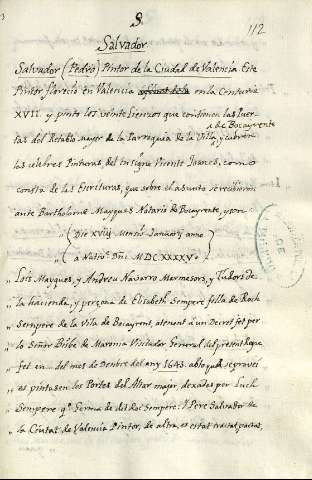 S.
112
Salvador.
Salvador (Pedro) Pintor de la Ciudad de Valencia Este
Pintor floreció en Valencia en la Centuria
XVII. y pinto los veinte lienzos que contienen las Puer-
tas del Retablo Mayor de la Parroquia de la Villa de Bocayrente y cubren
las celebres Pinturas, del insigne Vicente Joanes, como
consta de las Escrituras, que sobre el asunto se recibieron
ante Bartholome Mayques Notario de Bocayrente, y son
Die XVIIIJ mensis Januarij anno
a Nativ.e Dñi. MDCXXXXVº
" Lois Mayques, y Andreu Navarro Mermesors, y Tudors de
" la hacienda, y persona de Elisabeth Sempere filla de Roch
" Sempere de la Vila de Bocayrent, atenent a un Decret fet per
" lo Señor Bisbe de Maronia Visitador General del present Bisbat
" fet en ... del mes de Dembre del any 1643. ab lo qual se proveí
" es pintasen les Portes del Altar major, dexades per Luch
" Sempere germa de dit Roc Sempere: Y Pere Salvador de
" la Ciutat de Valencia Pintor, de altra, es estat tractat, pactat,